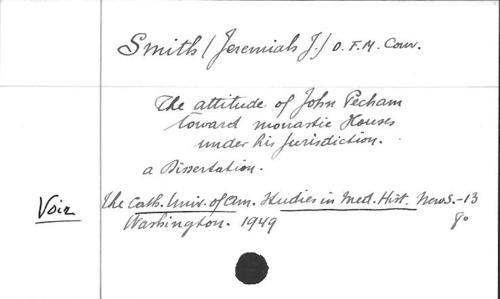 Smith (Jeremiah J.) O.F.M. Conv.
The attitude of John Pecham
toward monastic Houses
under his Jurisdiction.
a Dissertation.
Voir The Cath. Univ. of Am. Studies in Med. Hist. New S. - 13
Washington. 1949 8°